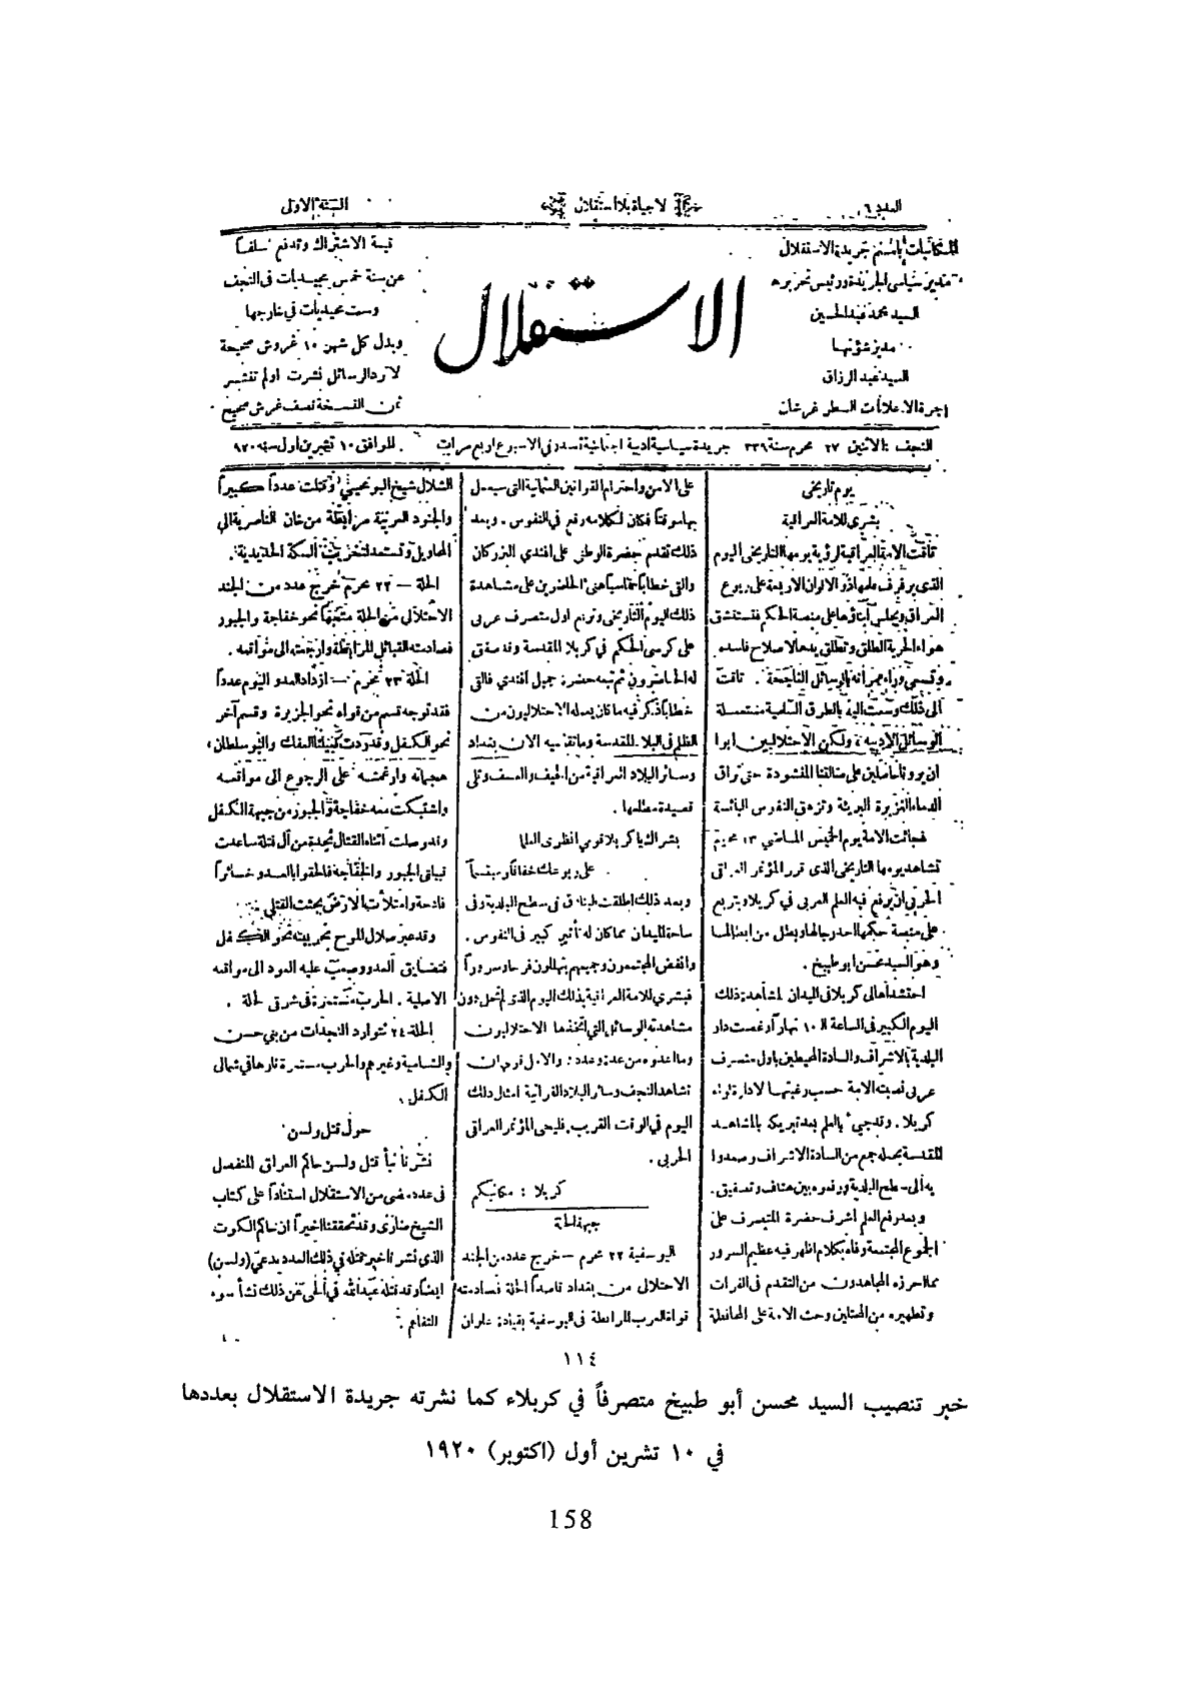 العدد ٦
لا حياة بلا استقلال
السنة الاولى
المكاتبات باسم جريدة الاستقلال
مدير سياسي الجريدة ورئيس تحريرها
السيد محمد عبدالحسين
مدير شؤنها
السيد عبد الرزاق
اجرة الاعلانات السطر غرشان
الاستقلال
قيمة الاشتراك وتدفع سلفاً
عن سنة خمس مجيديات في النجف
وست مجيديات في خارجها
وبدل كل شهر ١٠ غروش صحيحة
لا ترد الرسائل نشرت او لم تنشر
ثمن النسخة نصف غرش صحيح
النجف : الاثنين ٢٧ محرم سنة ٣٣٩
جريدة سياسية ادبية اجتماعية تصدر في الاسبوع اربع مرات
الموافق ١٠ تشرين اول سنة ٩٢٠
يوم تاريخي
بشرى للامة العراقية
تاقت الامة العراقية لرؤية يومها التاريخي اليوم
الذي يرفرف علمها ذو الالوان الاربعة على ربوع
العراق ويجلس ابناؤها على منصة الحكم فتستنشق
هواء الحرية الطلق وتطلق يدها لاصلاح فاسده
وتسعى وراء عمرانه بالوسائل الناجحة . تاقت
الى ذلك وسعت اليه بالطرق السلمية مستعملة
الوسائل الادبية ، ولكن الاحتلاليين ابوا
ان يرونا حاصلين على ضالتنا المنشودة حتى تراق
الدماء الغزيرة البريئة وتزهق النفوس البائسة
فجائت الامة يوم الخميس الماضي ٢٣ محرم
تشاهد يومها التاريخي الذي قرر المؤتمر العراقي
الحربي ان يرفع فيه العلم العربي في كربلا ويتربع
على منصة حكمها احد رجالها وبطل من ابطالها
وهو السيد محسن ابو طبيخ .
احتشد اهالي كربلا في الميدان لمشاهدة ذلك
اليوم الكبير في الساعة الـ ١٠ نهاراً وغصت دار
البلدية بالاشراف والسادة المحيطين باول متصرف
عربي نصبته الامة حسب رغبتها لادارة لواء
كربلا . وقد جيء بالعلم بعد تبريكه بالمشاهد
المقدسة يحمله جمع من السادة الاشراف وصعدوا
به الى سطح البلدية ورفعوه بين هتاف وتصفيق .
وبعد رفع العلم اشرف حضرة المتصرف على
الجموع المجتمعة وفاه بكلام اظهر فيه عظيم السرور
مما احرزه المجاهدون من التقدم في الفرات
وتطهيره من المحتلين وحث الامة على المحافظة
على الامن واحترام القوانين العثمانية التي سيعمل
بها موقتاً فكان لكلامه وقع في النفوس . وبعد
ذلك تقدم حضرة الوطني علي افندي البزركان
والقى خطاباً حماسياً هنئ الحاضرين على مشاهدة
ذلك اليوم التاريخي وتربع اول متصرف عربي
على كرسي الحكم في كربلا المقدسة وقد صفق
له الحاضرون ثم تبعه حضرة جميل افندي فالقى
خطاباً ذكر فيه ما كان يعمله الاحتلاليون من
الظلم في البلاد المقدسة وما تقاسيه الان بغداد
وسائر البلاد العراقية من الحيف والعسف وتلى
قصيدة مطلعها .
بشراك يا كربلا قومي انظري العلما
على ربوعك خفاقاً ومبتسماً
وبعد ذلك اطلقت طبنات في سطح البلدية وفي
ساحة الميدان مما كان له تأثير كبير في النفوس .
وانفض المجتمعون وجميعهم يتهللون فرحاً وسروراً
فبشرى للامة العراقية بذلك اليوم الذي لم تحل دون
مشاهدته الوسائل التي اتخذها الاحتلاليون
وما اعدوه من عدة وعدد : والامل قوي ان
تشاهد النجف وسائر البلاد العراقية امثال ذلك
اليوم في الوقت القريب ، فليحي المؤتمر العراقي
الحربي .
كربلا : مكاتبكم
جبهة الحلة
اليوسفية ٢٢ محرم – خرج عدد من الجند
الاحتلالي من بغداد قاصداً الحلة فصادمته
قوات العرب المرابطة في اليوسفية بقيادة علوان
الشلال شيخ البو محيي وقتلت عدداً كبيراً
والجنود العربية مرابطة من خان الناصرية الى
المحاويل وتستعد لتخريب السكة الحديدية .
الحلة – ٢٢ محرم خرج عدد من الجند
الاحتلالي من الحلة متجهاً نحو خفاجة والجبور
فصادمته القبائل المرابطة وارجعته الى مواقعه .
الحلة ٢٣ محرم – ازداد العدو اليوم عدداً
فقد توجه قسم من قواه نحو الجزيرة وقسم آخر
نحو الكفل وقد ردت قبيلتا الفتلة والبو سلطان
هجماته وارغمته على الرجوع الى مواقعه
واشتبكت معه خفاجة والجبور من جبهة الكفل
وقد وصلت اثناء القتال نجدة من آل فتلة ساعدت
قبائل الجبور والخفاجة فالحقوا بالعدو خسائراً
فادحة وامتلأت الارض بجثث القتلى
وقد عبر صلال الموح بحربيته نحو الكفل
فتضايق العدو وصعب عليه العود الى مواقعه
الاصلية . الحرب مستمرة في شرق الحلة .
الحلة ٢٤ تتوارد النجدات من بني حسن
والشامية وغيرهم والحرب مستعرة نارها في شمالي
الكفل .
حول قتل ولسن
نشرنا نبأ قتل ولسن حاكم العراق المنفصل
في عدد مضى من الاستقلال استناداً على كتاب
الشيخ ضاري وقد تحققنا اخيراً ان حاكم الكوت
الذي نشرنا خبر مقتله في ذلك العدد يدعى (ولسن)
ايضاً وقد قتله عبدالله في الحي فمن ذلك نشأ سوء
التفاهم .
١١٤
خبر تنصيب السيد محسن أبو طبيخ متصرفاً في كربلاء كما نشرته جريدة الاستقلال بعددها
في ١٠ تشرين أول (اكتوبر) ١٩٢٠
158